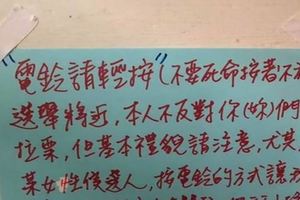 "電鈴請輕按"(不要死命按著不
選舉將近,本人不反對你(妳)們
拉票,但基本禮貌請注意,尤其
某女性侯選人,按電鈴的方式讓